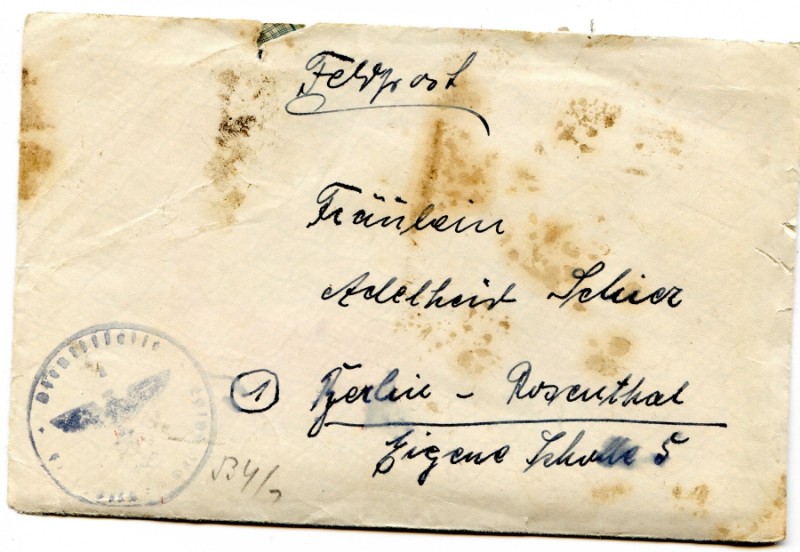 Feldpost
Fräulein
Adelheid Schier
① Berlin - Rosenthal
Eigene Scholle 5
Dienststelle